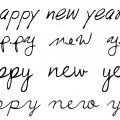 appy new year
appy new y
ppy new ye
appy new ye